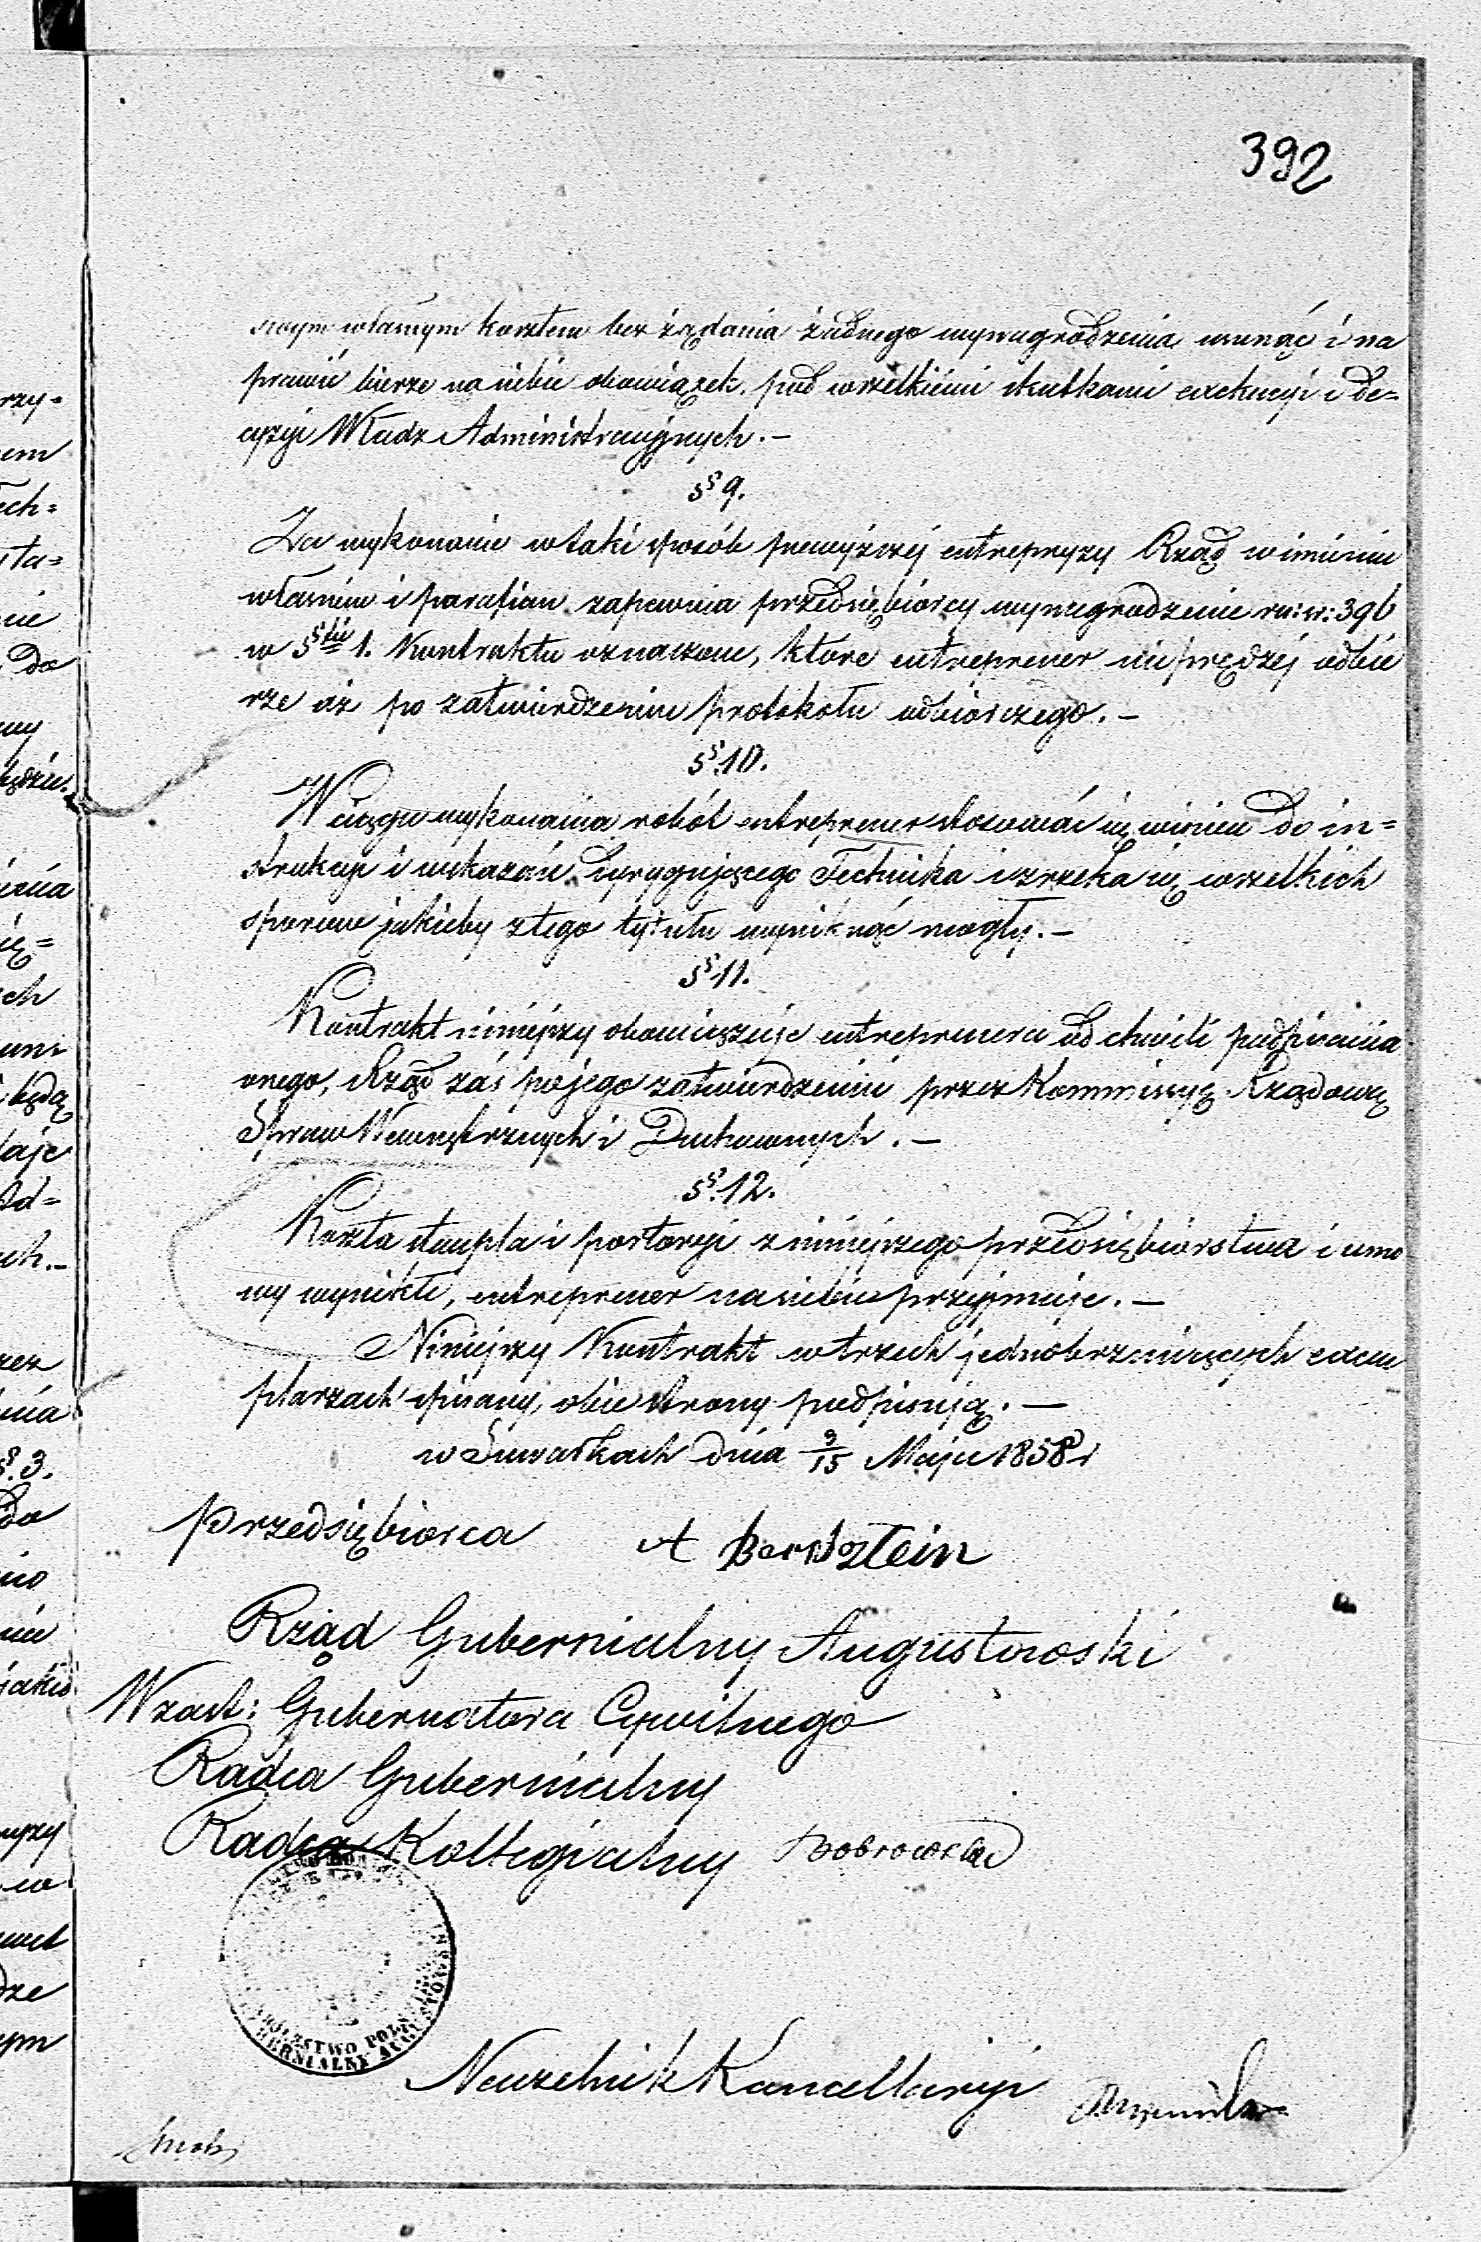 392
swym własnym kosztem bez żądania żadnego wynagrodzenia usunąć i na
prawić bierze na siebie obowiązek pod wszelkiemi skutkami exekucyi i de=
cyzyi Władz Administracyjnych.—
§ 9.
Za wykonanie w taki sposób powyższej entrepryzy Rząd w imieniu
własnem i parafian zapewnia przedsiębiorcy wynagrodzenie ru: sr: 396
w §cie 1. Kontraktu oznaczone, które entreprener nie prędzej odbie
rze aż po zatwierdzeniu protokołu odbiorczego.—
§. 10.
W ciągu wykonania robót entreprener stosować się winien do in=
strukcyi i wskazań dyrygującego Technika i zrzeka się wszelkich
sporow jakieby z tego tytułu wyniknąć mogły.—
§ 11.
Kontrakt niniejszy obowiązuje entreprenera od chwili podpisania
onego, Rząd zaś po jego zatwierdzeniu przez Kommissyę Rządową
Spraw Wewnętrznych i Duchownych.—
§. 12.
Koszta stempla i portoryi z niniejszego przedsiębiorstwa i umo
wy wynikłe, entreprener na siebie przyjmuje.—
Niniejszy Kontrakt w trzech jednobrzmiących exem
plarzach spisany, obie strony podpisują.—
w Suwałkach dnia 3/15 Maja 1858 r
Przedsiębiorca A Bernsztein
Rząd Gubernialny Augustowski
W zast: Gubernatora Cywilnego
Radca Gubernialny
Radca Kollegialny Dobrowolski
KRÓLESTWO POLS
GUBERNIALNY AUGUSTOWSKI
Naczelnik Kancellaryi